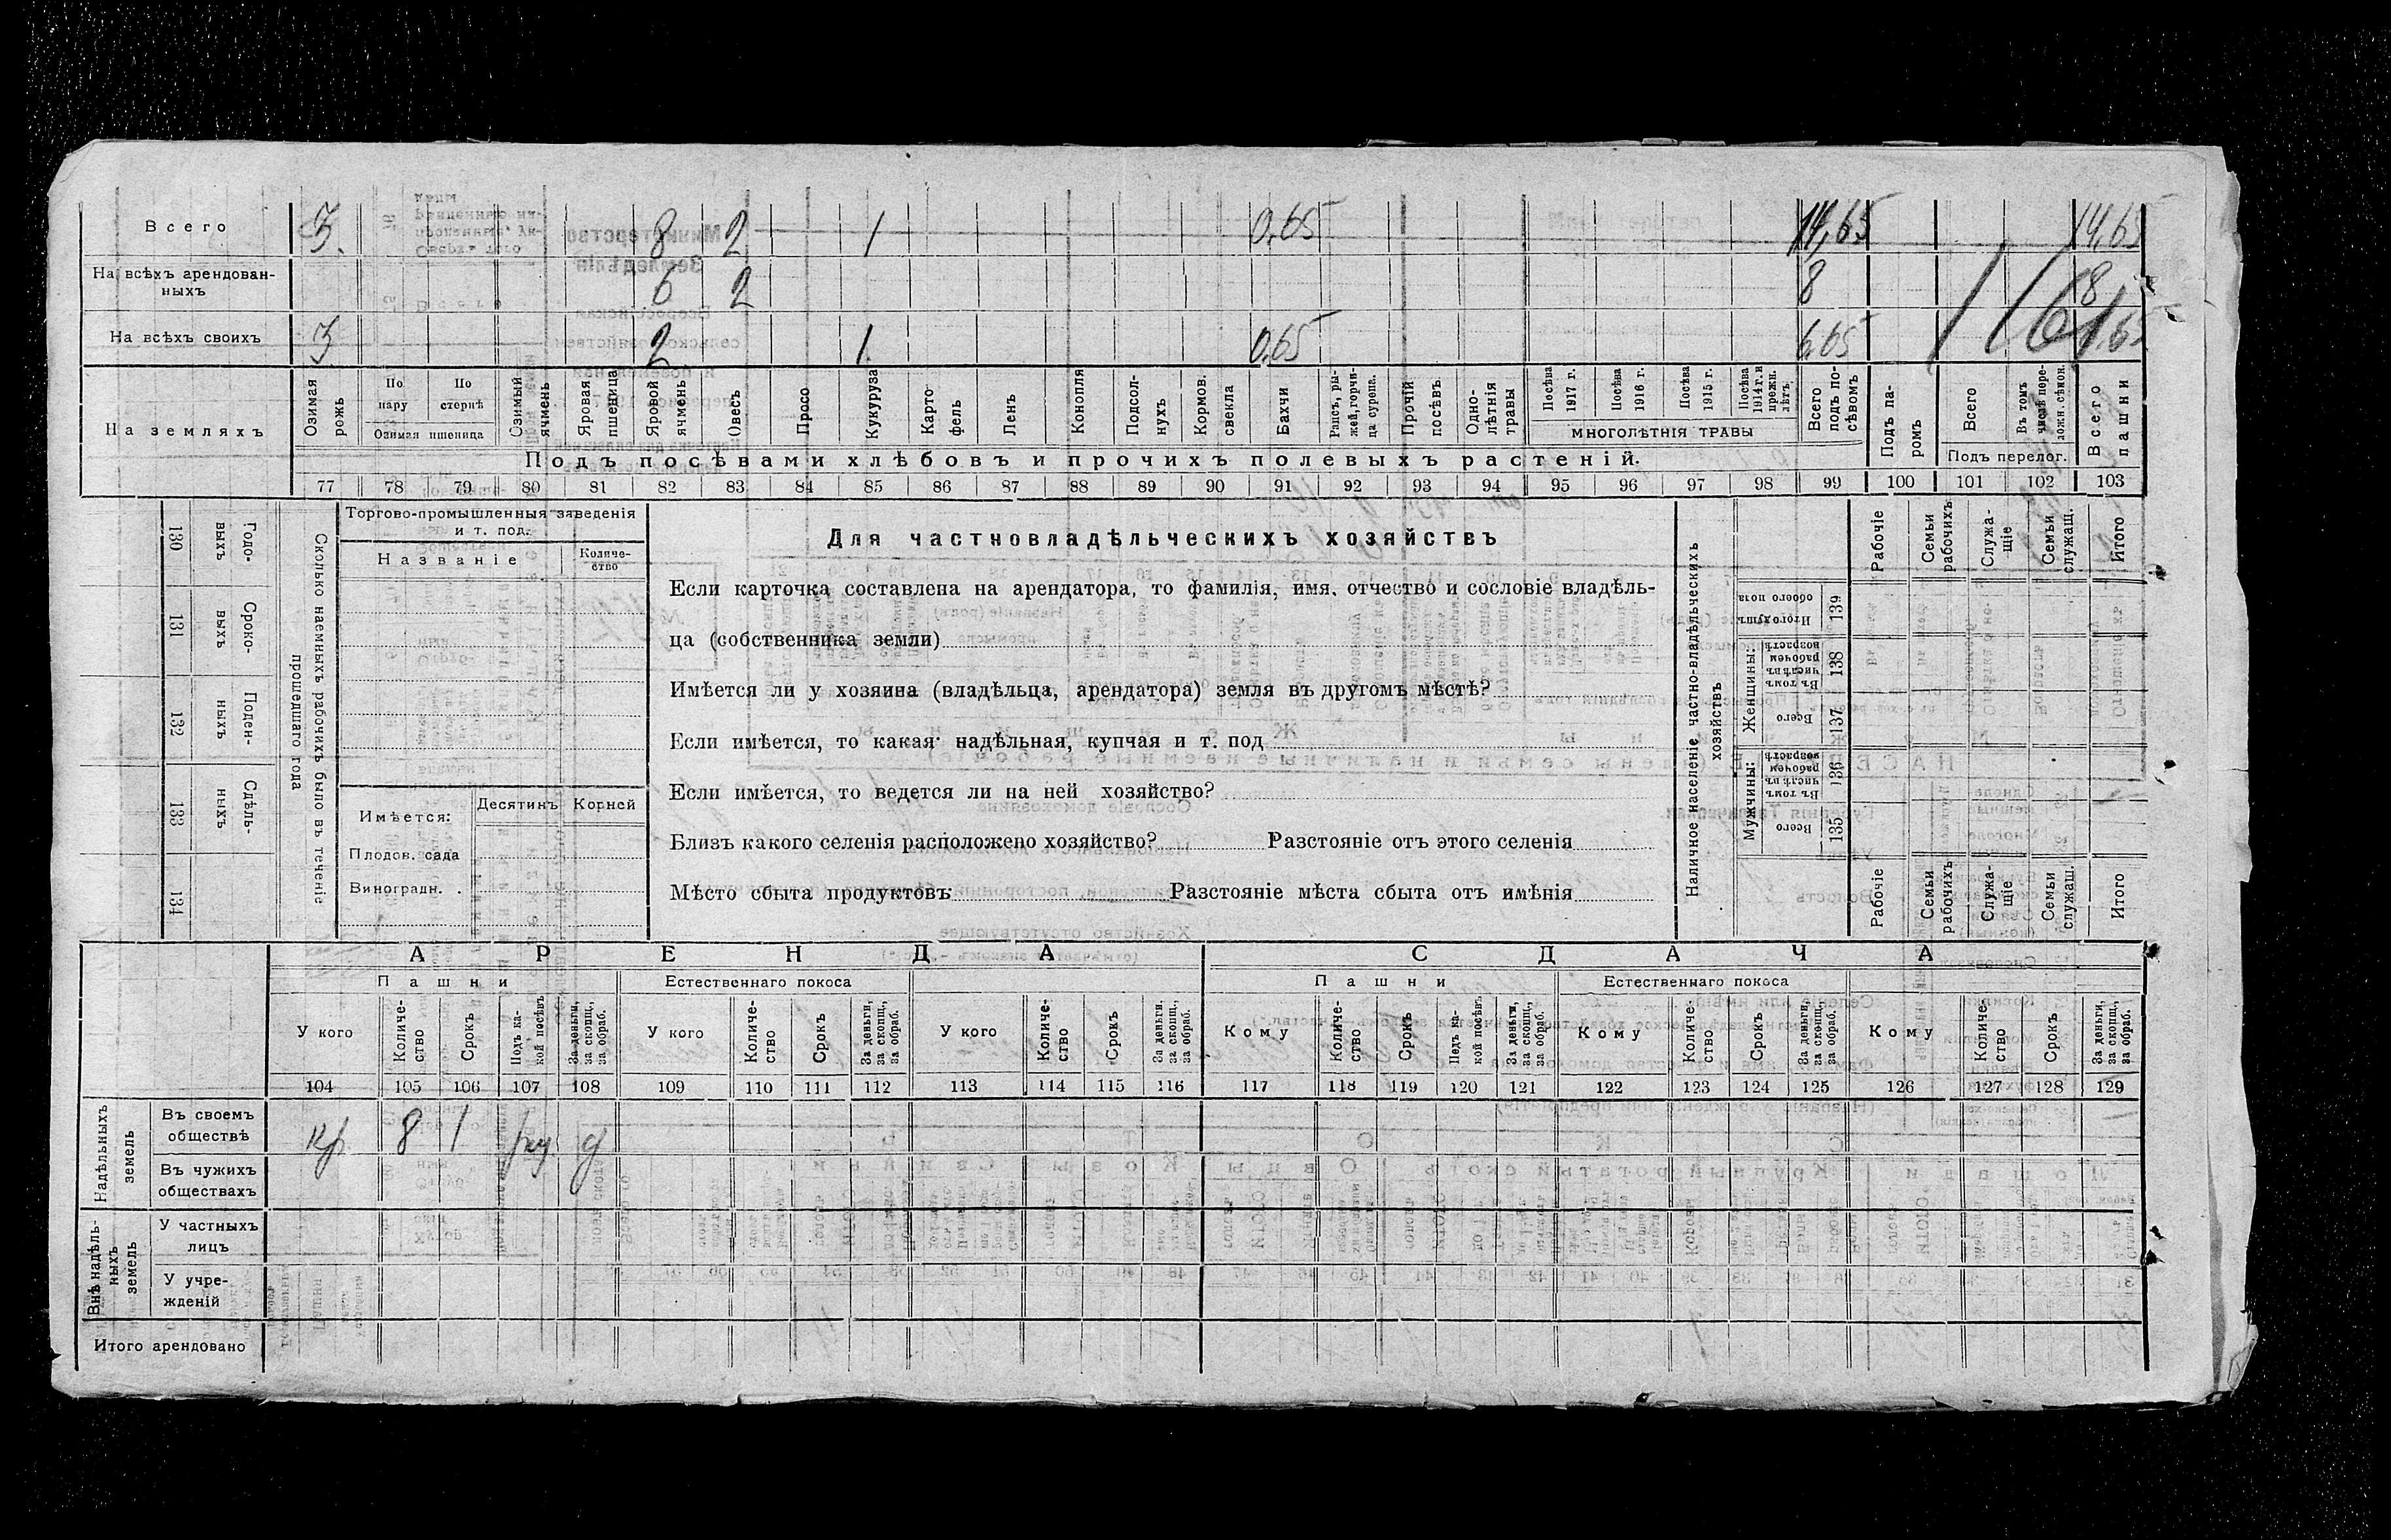 Всего 3. 8 2 1 0.65 14,65 14,65
На всѣхъ арендован-
ныхъ 6 2 8 8
На всѣхъ своихъ 3 2 1. 0.65 6.65
На земляхъ
Озимая рожь
По пару
По стернѣ
Озимая пшеница
Озимый ячмень
Яровая пшеница
Яровой ячмень
Овесъ
Просо
Кукуруза
Карто фель
Ленъ
Конопля
Подсол- нухъ
Кормов. свекла
Бахчи
Рапсъ, ры- жей, горчи- ца сурепа.
Прочій посѣвъ
Одно- лѣтнія травы
Посѣва 1917 г.
Посѣва 1916 г.
Посѣва 1915 г.
Посѣва 1914 г. и прежн. лѣтъ.
МНОГОЛѢТНІЯ ТРАВЫ
Всего подъ по- сѣвомъ
Подъ па- ромъ
Всего
Въ томъ числѣ пере- лож. сѣнок.
Подъ перелог.
Всего пашни
Подъ посѣвами хлѣбовъ и прочихъ полевыхъ растеній.
77 78 79 80 81 82 83 84 85 86 87 88 89 90 91 92 93 94 95 96 97 98 99 100 101 102 103
130 Годо- выхъ
131 Сроко- выхъ
132 Поден- ныхъ
133 Сдѣль- ныхъ
134
Сколько наемныхъ рабочихъ было въ теченіе
прошедшаго года
Торгово-промышленныя заведенія
и т. под.
Названіе
Количе-
ство
Имѣется:
Десятинъ
Корней
Плодов. сада
Виноградн. .
Для частновладѣльческихъ хозяйствъ
Если карточка составлена на арендатора, то фамилія, имя, отчество и сословіе владѣль-
ца (собственника земли)
Имѣется ли у хозяина (владѣльца, арендатора) земля въ другомъ мѣстѣ?
Если имѣется, то какая: надѣльная, купчая и т. под
Если имѣется, то ведется ли на ней хозяйство?
Близъ какого селенія расположено хозяйство? Разстояніе отъ этого селенія
Мѣсто сбыта продуктовъ Разстояніе мѣста сбыта отъ имѣнія
Наличное населеніе частно-владѣльческихъ
хозяйствъ
Рабочіе
Семьи рабочихъ
Служа- щіе
Семьи служащ.
Итого
Итого душъ обоего пола 139
Женщины:
Въ томъ числѣ въ рабочемъ возрастѣ 138
Всего 137
Мужчины:
Въ томъ числѣ въ рабочем возрастѣ 136
Всего 135
Рабочіе
Семьи рабочихъ
Служа- щіе
Семьи служащ.
Итого
АРЕНДА
СДАЧА
Пашни
Естественнаго покоса
Пашни
Естественнаго покоса
У кого
Количе- ство
Срокъ
Подъ ка- кой посѣвъ
За деньги, за скопщ., за обраб.
У кого
Количе- ство
Срокъ
За деньги, за скопщ., за обраб.
У кого
Количе- ство
Срокъ
За деньги, за скопщ., за обраб.
Кому
Количе- ство
Срокъ
Подъ ка- кой посѣвъ.
За деньги, за скопщ., за обраб.
Кому
Количе- ство
Срокъ
За деньги, за скопщ., за обраб.
Кому
Количе- ство
Срокъ
За деньги, за скопщ., за обраб.
104 105 106 107 108 109 110 111 112 113 114 115 116 117 118 119 120 121 122 123 124 125 126 127 128 129
Надѣльныхъ
земель
Въ своемъ
обществѣ
кр. 8 1 д
Въ чужихъ
обществахъ
Внѣ надѣль-
ныхъ
земель
У частныхъ
лицъ
У учре-
жденій
Итого арендовано